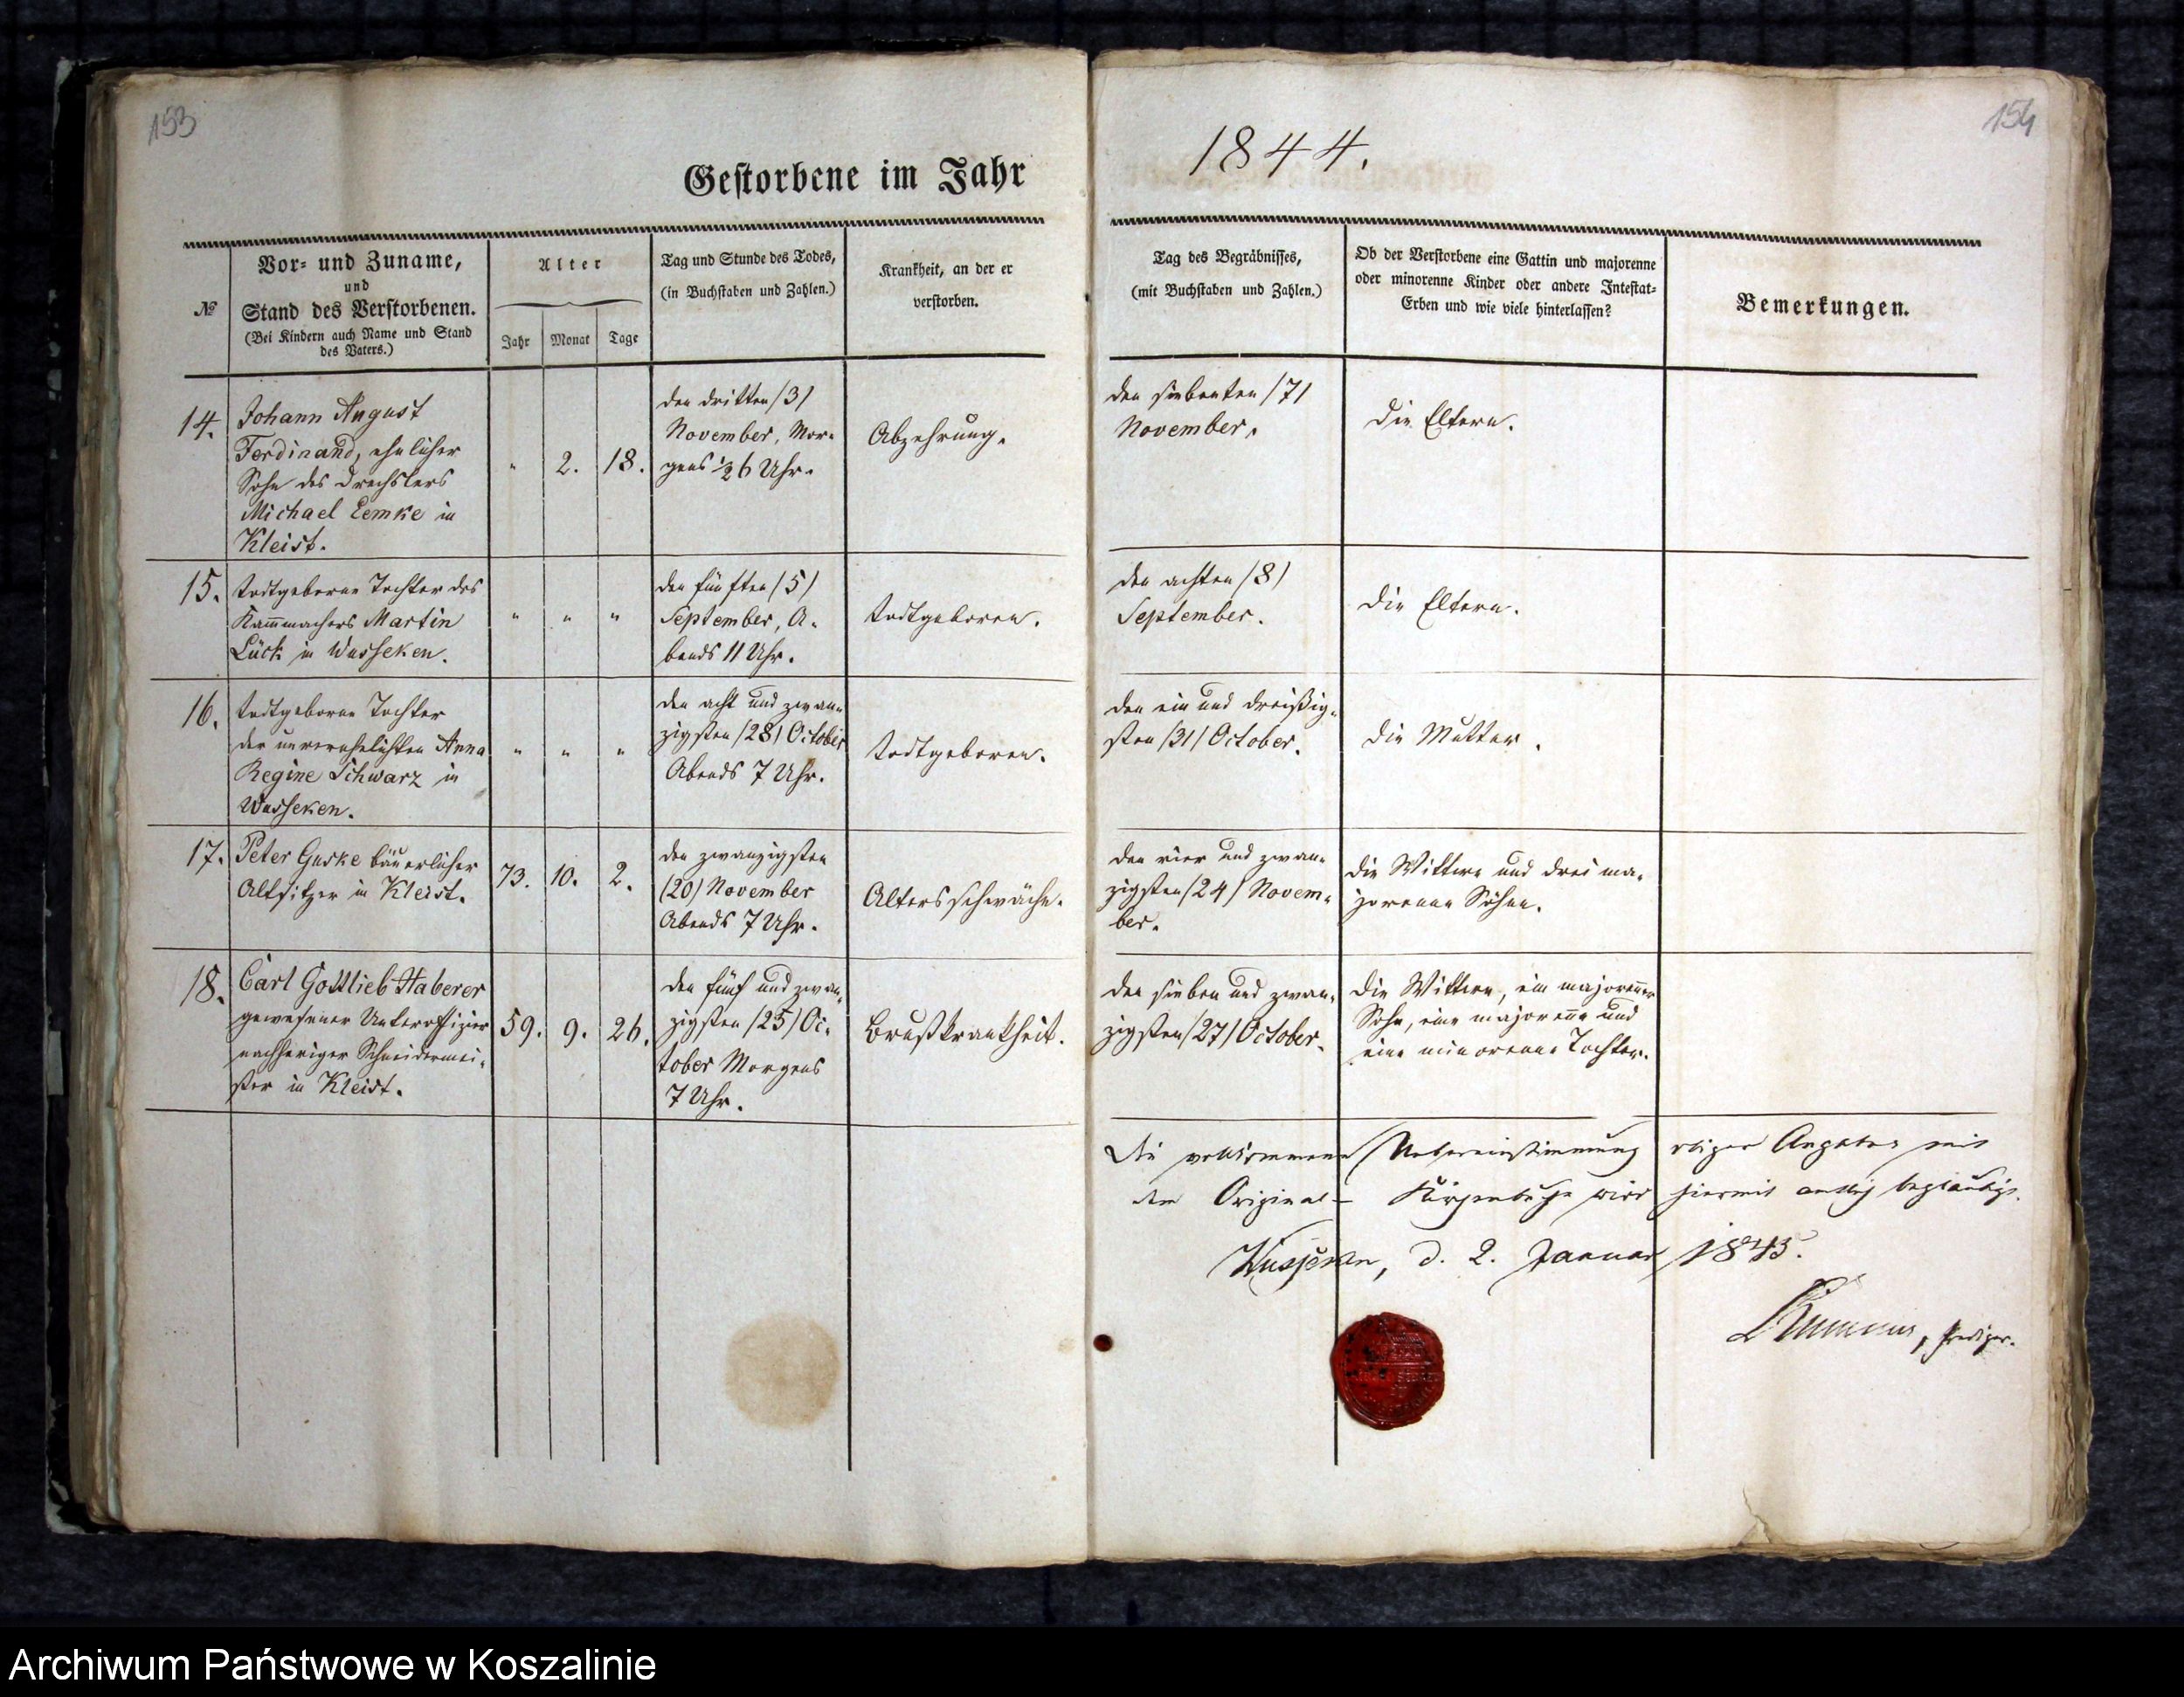 153
Gestorbene im Jahr
№
Vor- und Zuname,
und
Stand des Verstorbenen.
(Bei Kindern auch Name und Stand
des Vaters.)
Alter
Jahr
Monat
Tage
Tag und Stunde des Todes,
(in Buchstaben und Zahlen.)
Krankheit, an der er
verstorben.
14.
Johann August
Ferdinand, ehelicher
Sohn des Drechslers
Michael Lemke in
Kleist.
"
2.
18.
den dritten /3/
November, Mor-
gens ½6 Uhr.
Abzehrung.
15.
todtgeborne Tochter des
Kam̅machers Martin
Lück in Wusseken.
"
"
"
den fünften /5/
September, A-
bends 11 Uhr.
todtgeboren.
16.
todtgeborne Tochter
der unverehelichten Anna
Regine Schwarz in
Wusseken.
"
"
"
den acht und zwan-
zigsten /28/ October
Abends 7 Uhr.
todtgeboren.
17.
Peter Guske bäuerlicher
Altsitzer in Kleist.
73.
10.
2.
den zwanzigsten
(20) November
Abends 7 Uhr.
Altersschwäche.
18.
Carl Gottlieb Haberer
gewesener Unteroffizier
nachheriger Schneidermei-
ster in Kleist.
59.
9.
26.
den fünf und zwan-
zigsten /25/ Oc-
tober Morgens
7 Uhr.
Brustkrankheit.
154
1844.
Tag des Begräbnisses,
(mit Buchstaben und Zahlen.)
Ob der Verstorbene eine Gattin und majorenne
oder minorenne Kinder oder andere Intestat-
Erben und wie viele hinterlassen?
Bemerkungen.
den siebenten /7/
November.
die Eltern.
den achten /8/
September.
die Eltern.
den ein und dreißig-
sten /31/ October.
die Mutter.
den vier und zwan-
zigsten /24/ Novem-
ber.
die Wittwe und drei ma-
jorenne Söhne.
den sieben und zwan-
zigsten /27/ October.
die Wittwe, ein majoren̅er
Sohn, eine majoren̅e und
eine minorenne Tochter.
Die vollkommene Uebereinstimmung obiger Angaben mit
dem Original-Kirchenbuche wird hiermit amtlich beglaubigt.
Wusseken, d. 2. Januar 1845.
Prediger.
Archiwum Państwowe w Koszalinie